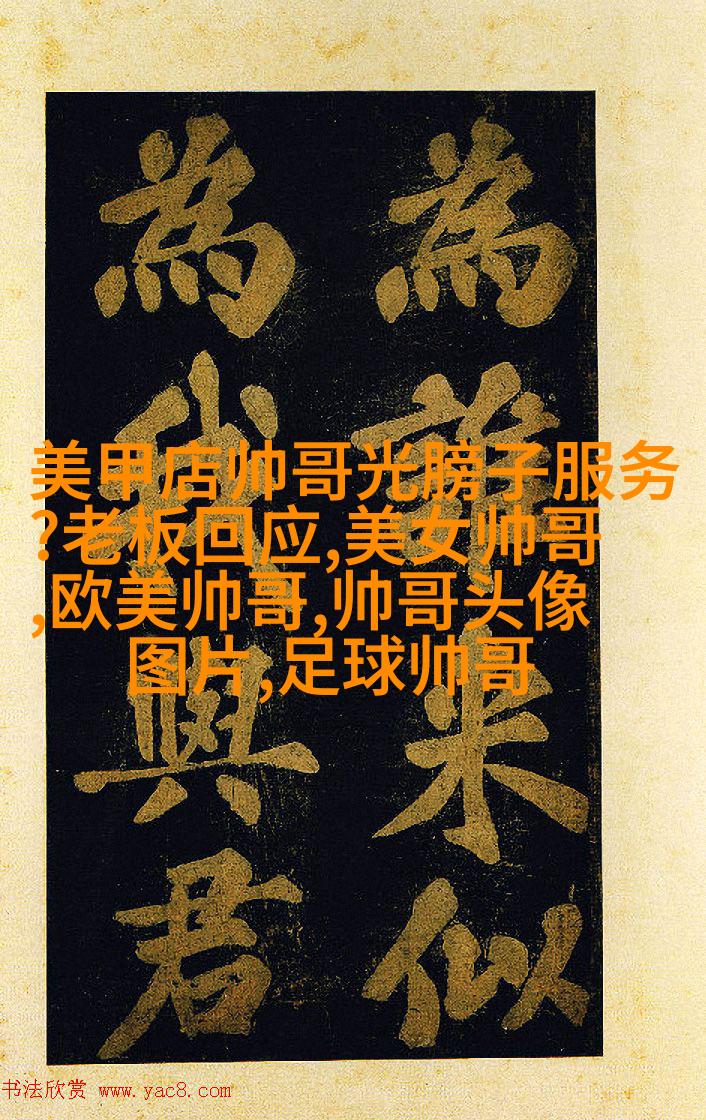 為誰来似
為我與君
美甲店帅哥光膀子服务
?老板回应,美女帅哥
,欧美帅哥,帅哥头像
图片,足球帅哥
书法欣赏 www.yac8.com